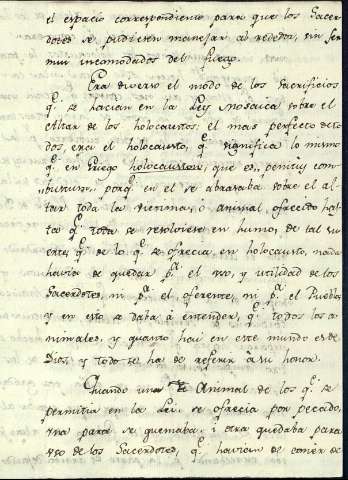 el espacio correspondiente para que los Sacer-
dotes se pudiesen manejar al rededor, sin ser
mui incomodados del fuego.
Era diverso el modo de los Sacrificios
q.e se hacian en la Ley Mosaica sobre el
Altar de los holocaustos; el mas perfecto de to-
dos, era el holocausto, q.e significa lo mismo
q.e en Griego holocauston, que es, penitus com-
bustum, porq.e en el se abrasaba sobre el al-
tar toda la victima, ò animal, ofrecido has-
ta q.e toda se resolviese en humo, de tal su-
erte, q.e de lo q.e se ofrecia, en holocausto, nada
havia de quedar p.a el uso, y utilidad de los
Sacerdotes, ni p.a el oferente, ni p.a el Pueblo,
y en esto se daba à entender, q.e todos los a-
nimales, y quanto hai en este mundo es de
Dios, y todo se ha de referir à su honor.
Quando un Animal de los q.e se
permitia en la Lei, se ofrecia por pecado,
una parte se quemaba, i otra quedaba para
uso de los Sacerdotes, q.e havian de comer de